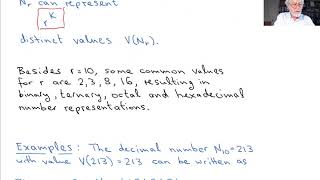 Nᵣ can represent
rᴷ
distinct values V(Nᵣ).
Besides r=10, some common values
for r are 2,3, 8, 16, resulting in
binary, ternary, octal and hexadecimal
number representations.
Examples: The decimal number N₁₀=213
with value V(213)=213 can be written as